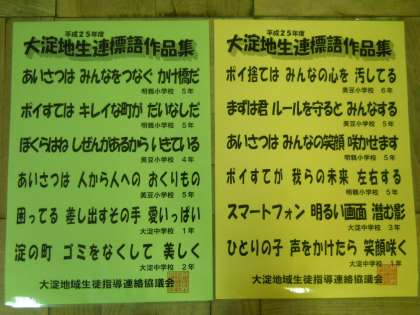 平成25年度
大淀地生連標語作品集
あいさつは みんなをつなぐ かけ橋だ
明親小学校 5年
ポイすては キレイな町が だいなしだ
明親小学校 5年
ぼくらはね しぜんがあるから いきている
美豆小学校 4年
あいさつは 人から人への おくりもの
美豆小学校 5年
困ってる 差し出すその手 愛いっぱい
大淀中学校 1年
淀の町 ゴミをなくして 美しく
大淀中学校 2年
大淀地域生徒指導連絡協議会
平成25年度
大淀地生連標語作品集
ポイ捨ては みんなの心を 汚してる
美豆小学校 6年
まずは君 ルールを守ると みんなする
明親小学校 5年
あいさつは みんなの笑顔 咲かせます
明親小学校 5年
ポイすてが 我らの未来 左右する
明親小学校 5年
スマートフォン 明るい画面 潜む影
大淀中学校 3年
ひとりの子 声をかけたら 笑顔咲く
大淀中学校 1年
大淀地域生徒指導連絡協議会